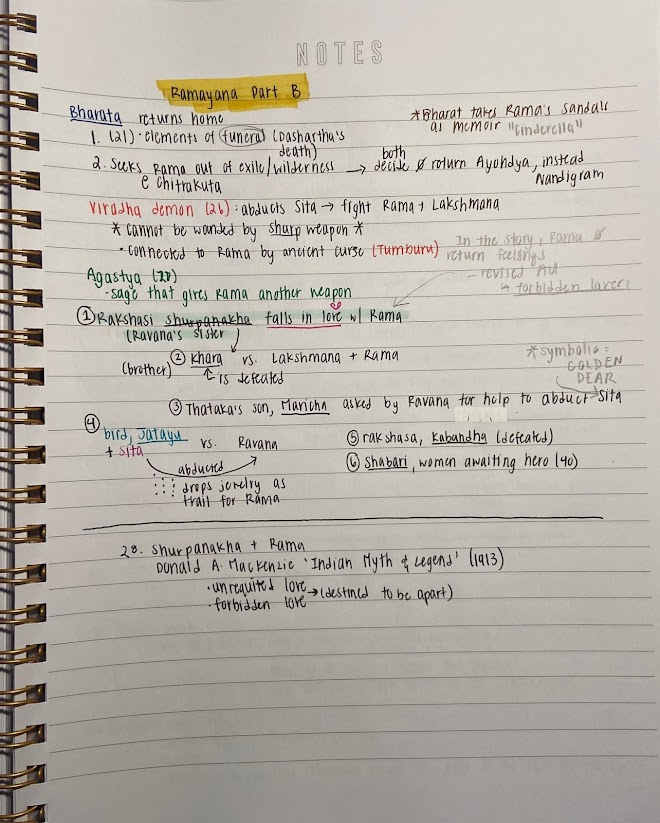 NOTES
Ramayana Part B
Bharata returns home
*Bharat takes Rama's sandals
as memoir "Cinderella"
1. (21) · elements of funeral (Dashartha's
death)
2. Seeks Rama out of exile/wilderness → both decide ∅ return Ayohdya, instead
@ Chitrakuta
Nandigram
Viradha demon (26) : abducts Sita → fight Rama + Lakshmana
* cannot be wanded by sharp weapon *
· connected to Rama by ancient curse (Tumburu)
In the story, Rama ∅
return feelings
— revised AU
↳ forbidden lovers
Agastya (27)
· sage that gives Rama another weapon
① Rakshasi shurpanakha falls in love w/ Rama
(Ravana's sister
(brother) ② khara vs. Lakshmana + Rama
is defeated
*symbolic:
GOLDEN
DEAR
③ Thataka's son, Maricha asked by Ravana for help to abduct Sita
④ bird, Jatayu vs. Ravana
+ sita
abducted
drops jewelry as
trail for Rama
⑤ rakshasa, Kabandha (defeated)
⑥ Shabari, women awaiting hero (40)
28. Shurpanakha + Rama
Donald A. Mackenzie 'Indian Myth & Legend' (1913)
· unrequited love
· forbidden love → (destined to be apart)